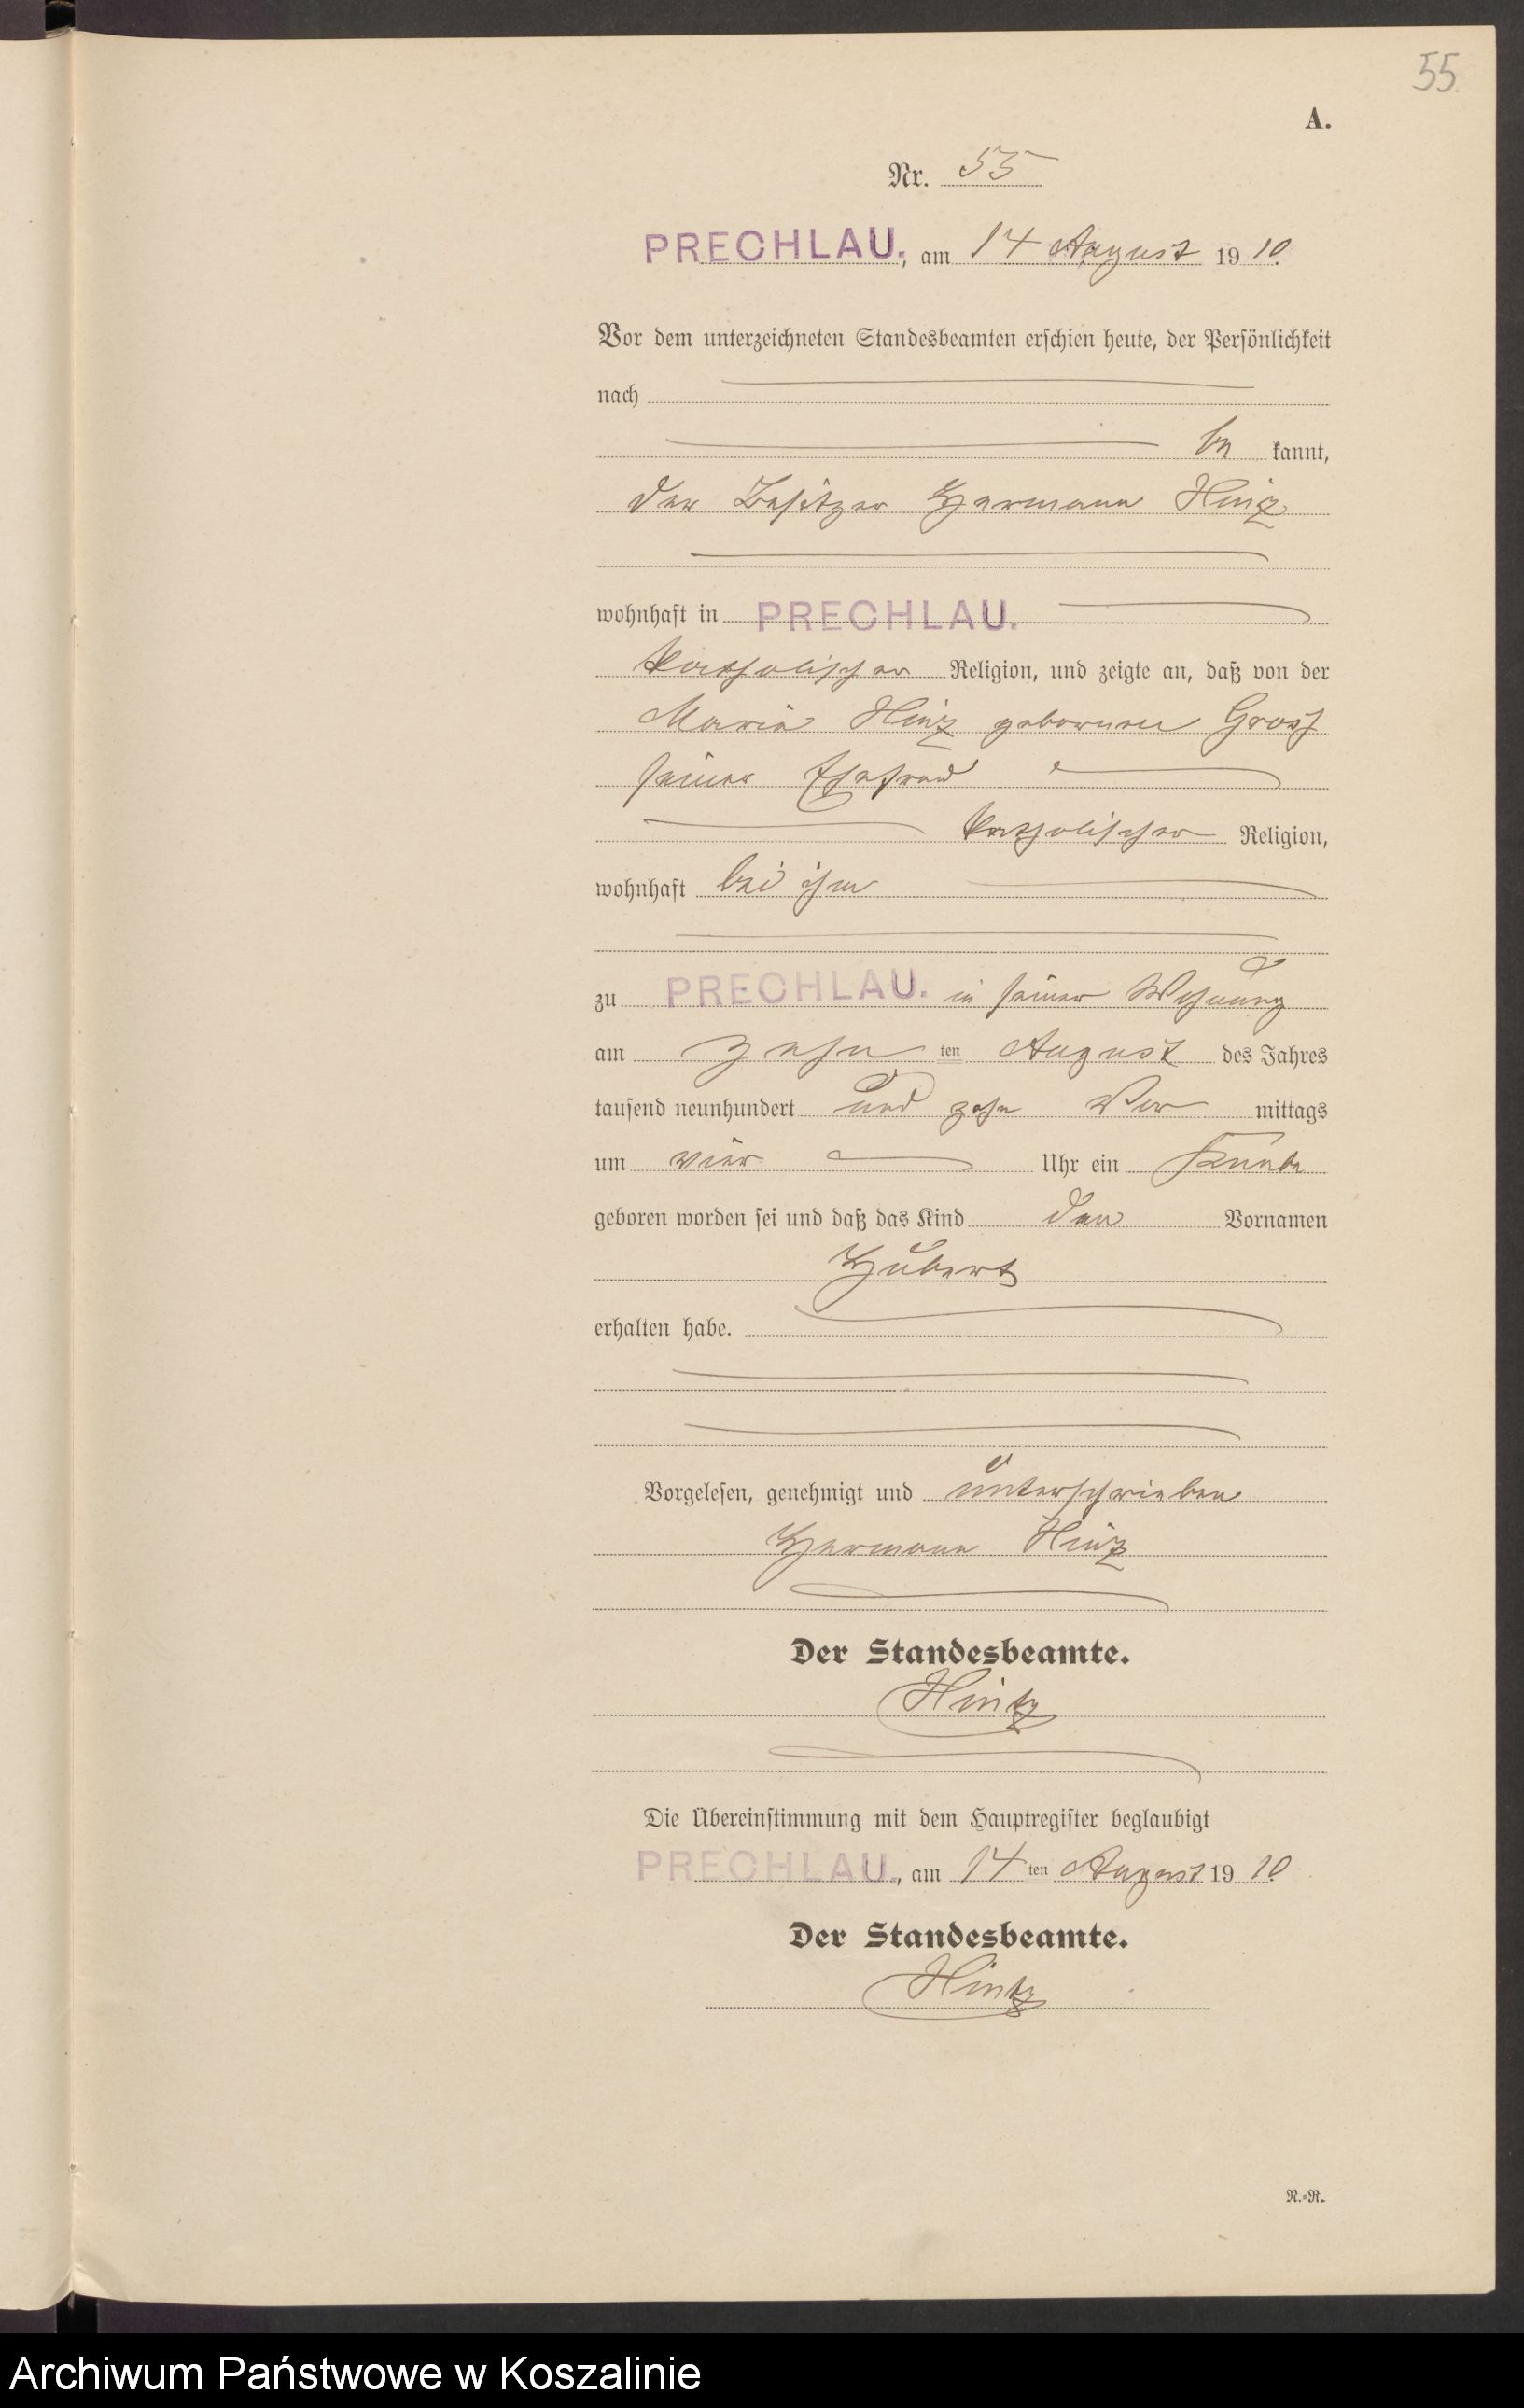 55.
A.
Nr. 55
PRECHLAU., am 14 August 1910.
Vor dem unterzeichneten Standesbeamten erschien heute, der Persönlichkeit
nach
be kannt,
der Besitzer Hermann Hinz
wohnhaft in PRECHLAU.
katholischer Religion, und zeigte an, daß von der
Maria Hinz geborenen Gross
seiner Ehefrau
katholischer Religion,
wohnhaft bei ihm
zu PRECHLAU. in seiner Wohnung
am zehn ten August des Jahres
tausend neunhundert und zehn Vor mittags
um vier Uhr ein Knabe
geboren worden sei und daß das Kind den Vornamen
Hubert
erhalten habe.
Vorgelesen, genehmigt und unterschrieben
Hermann Hinz
Der Standesbeamte.
Hintz
Die Übereinstimmung mit dem Hauptregister beglaubigt
PRECHLAU., am 14 ten August 1910.
Der Standesbeamte.
Hintz
N.=R.
Archiwum Państwowe w Koszalinie